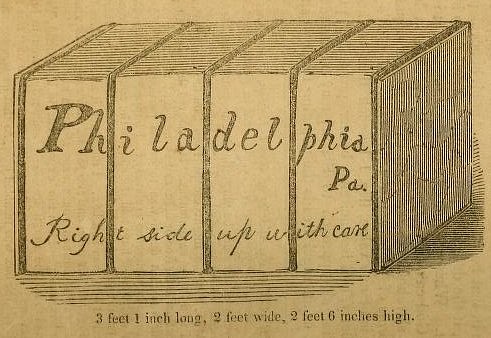 Philadelphia
Pa.
Right side up with care
3 feet 1 inch long, 2 feet wide, 2 feet 6 inches high.